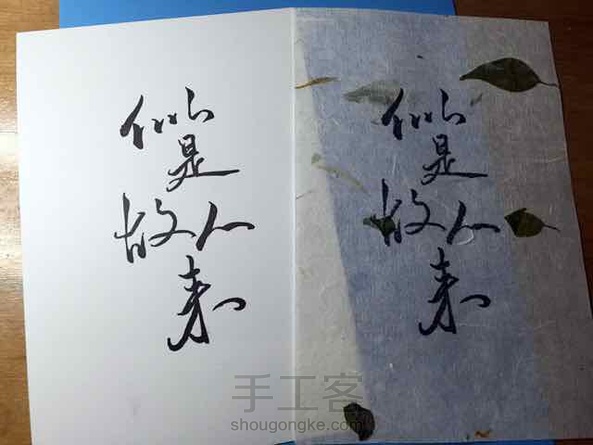 似
是
故人
来
似
是
故人
来
手工客
shougongke.com